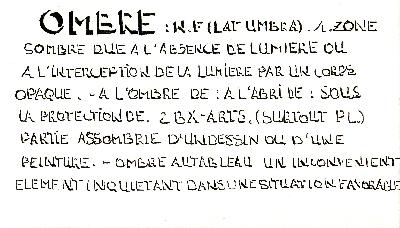 OMBRE : N.F (LAT UMBRA). 1. ZONE
SOMBRE DUE A L'ABSENCE DE LUMIERE OU
A L'INTERCEPTION DE LA LUMIERE PAR UN CORPS
OPAQUE. - A L'OMBRE DE : A L'ABRI DE : SOUS
LA PROTECTION DE. 2 BX-ARTS. (SURTOUT PL)
PARTIE ASSOMBRIE D'UN DESSIN OU D'UNE
PEINTURE. - OMBRE AU TABLEAU UN INCONVENIENT
ELEMENT INQUIETANT DANS UNE SITUATION FAVORABLE